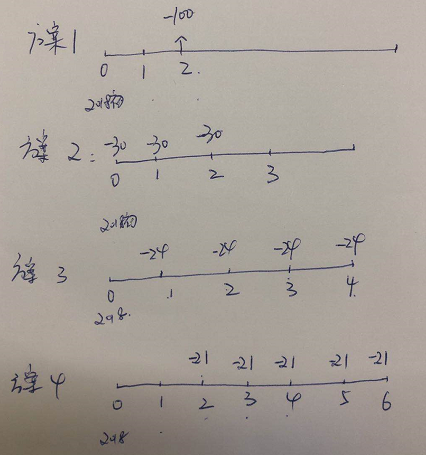 -100
方案1
0 1 2.
2018初
方案2: -30 -30 -30
0 1 2 3
2018初
-24 -24 -24 -24
方案3
0 1 2 3 4.
2018.
-21 -21 -21 -21 -21
方案4
0 1 2 3 4 5 6
2018